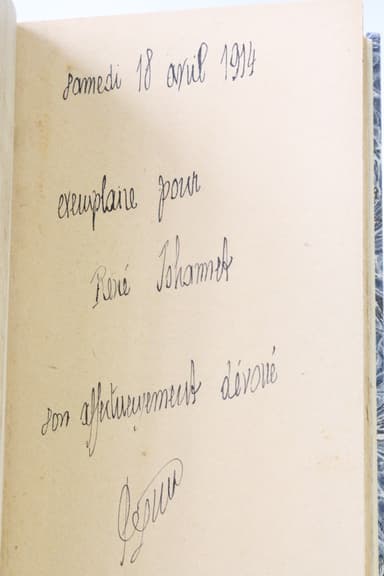 samedi 18 avril 1914
exemplaire pour
René Johannet
son affectueusement dévoué
Péguy